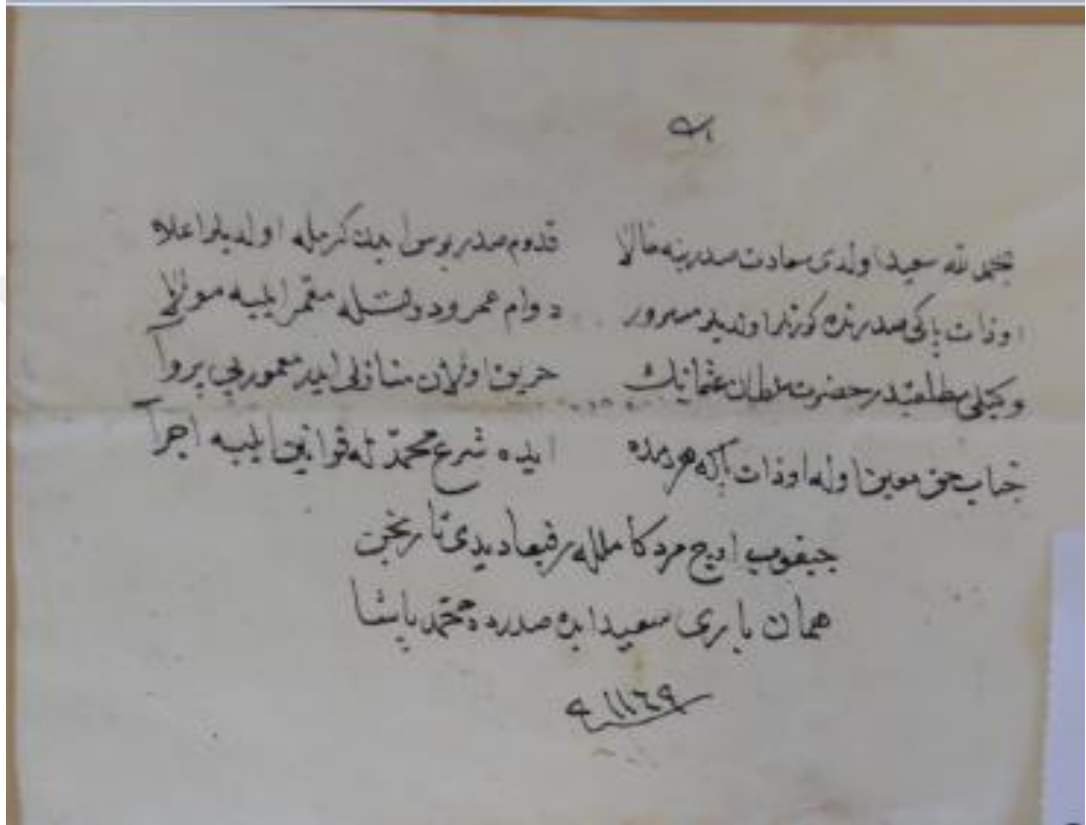 بحمد لله سعيد اولدى سعادت صدرينه حالا قدوم صدر بوس ايدن كرمله اولديلر اعلا
او ذات پاكى صدرنده كورنلر اولديلر مسرور دوام عمر و دولتله معمر ايليه مولا
وكيلى مطلقيدر حضرت سلطان عثمانك حريق اولان منازلى ايدر معمور بى پروا
جناب حق معين اوله او ذات پاكه هر دمده ايده شرع محمدله قوانين ايليه اجرا
جيقوب اوچ مرد كامله رفيعا ديدى تاريخن
همان بارى سعيد ايده صدرده محمد پاشا
١١٦٩